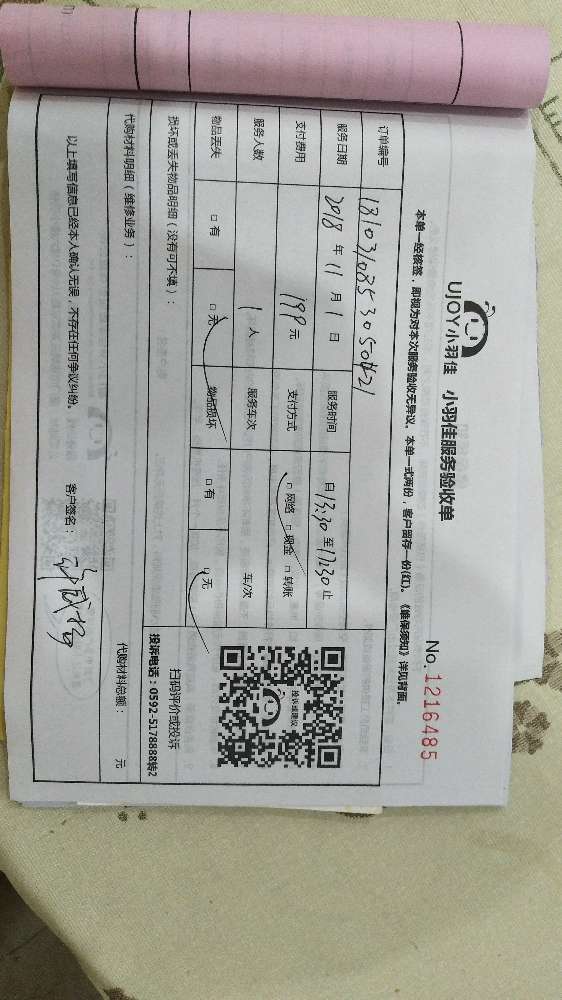 UJOY小羽佳 小羽佳服务验收单
No.1216485
本单一经核签，即视为对本次服务验收无异议。本单一式两份，客户留存一份(红)。《维保须知》详见背面。
订单编号
服务日期 2018 年 11 月 1 日 服务时间 自 13:30 至 17:30 止
支付费用 199 元 支付方式 □ 网络 □ 现金 □ 转账
服务人数 1 人 服务车次 车/次
物品丢失 □ 有 □ 无 物品损坏 □ 有 □ 无
投诉或建议
扫码评价或投诉
投诉电话：0592-5178888转2
损坏或丢失物品明细（没有可不填）：
代购材料明细（维修业务）： 代购材料总额： 元
以上填写信息已经本人确认无误，不存在任何争议纠纷。 客户签名：